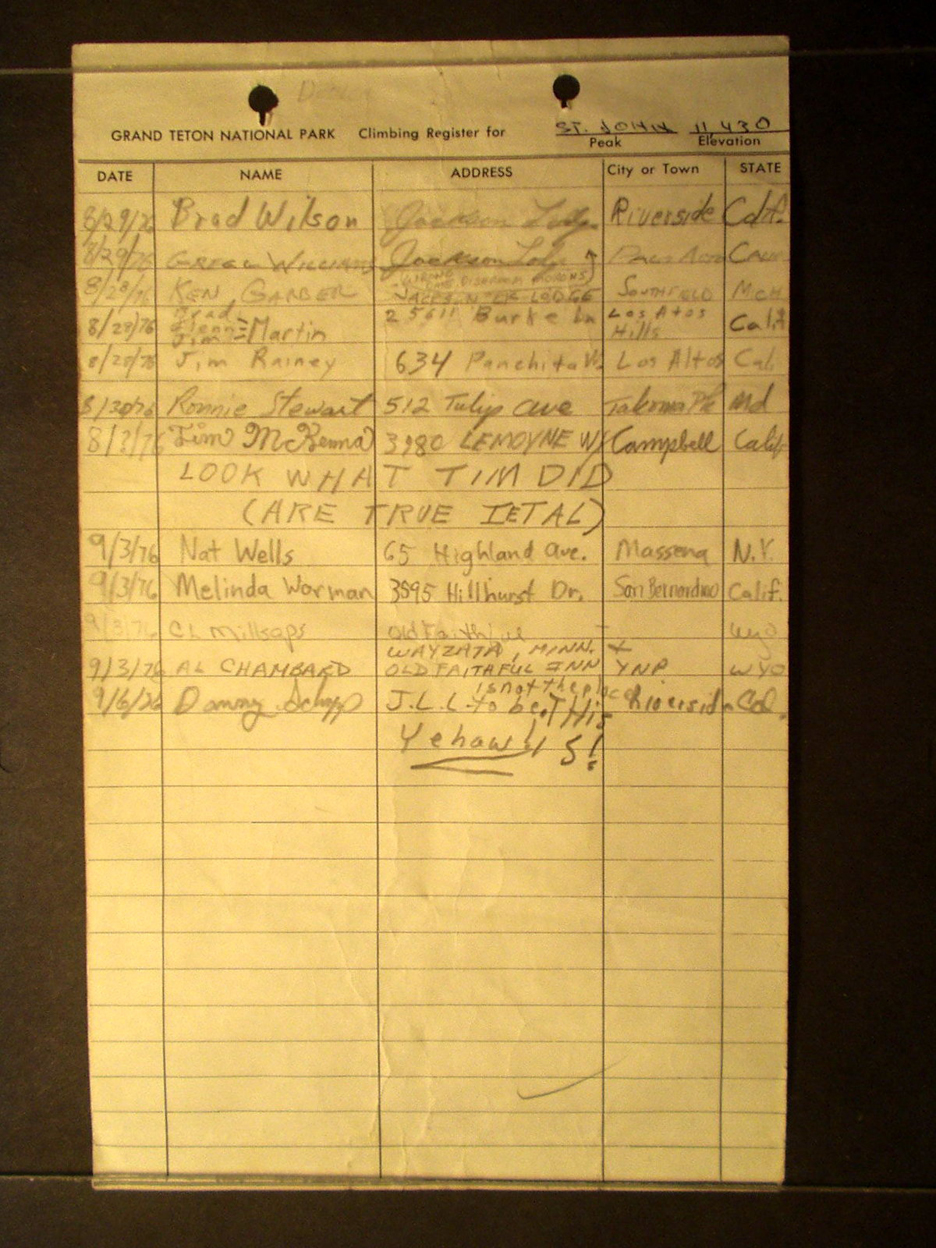 GRAND TETON NATIONAL PARK Climbing Register for ST. JOHN 11,430
Peak Elevation
DATE NAME ADDRESS City or Town STATE
8/29/76 Brad Wilson Jackson Lodge Riverside Calif.
8/29/76 GREGG WILLIAMS Jackson Lodge Calif
WRONG
8/28/76 KEN GARBER JACKSON LK LODGE SOUTHFIELD MICH
Brad
8/28/76 Glenn Martin 25611 Burke Ln Los Altos Calif
Jim Hills
8/28/76 Jim Rainey 634 Panchita W. Los Altos Cal.
8/30/76 Ronnie Stewart 512 Tulip Ave Takoma Pk Md
8/?/76 Tim McKenna 3980 LEMOYNE W Campbell Calif
LOOK WHAT TIM DID
(ARE TRUE IETAL)
9/3/76 Nat Wells 65 Highland Ave. Massena N.Y.
9/3/76 Melinda Worman 3595 Hillhurst Dr. San Bernardino Calif.
9/3/76 CL Millsaps Old Faithful Wyo
WAYZATA, MINN. +
9/3/76 AL CHAMBARD OLD FAITHFUL INN YNP WYO
is not the place
9/6/76 Danny J.L.L. to be, This Riverside Cal.
Yehaw!! IS!